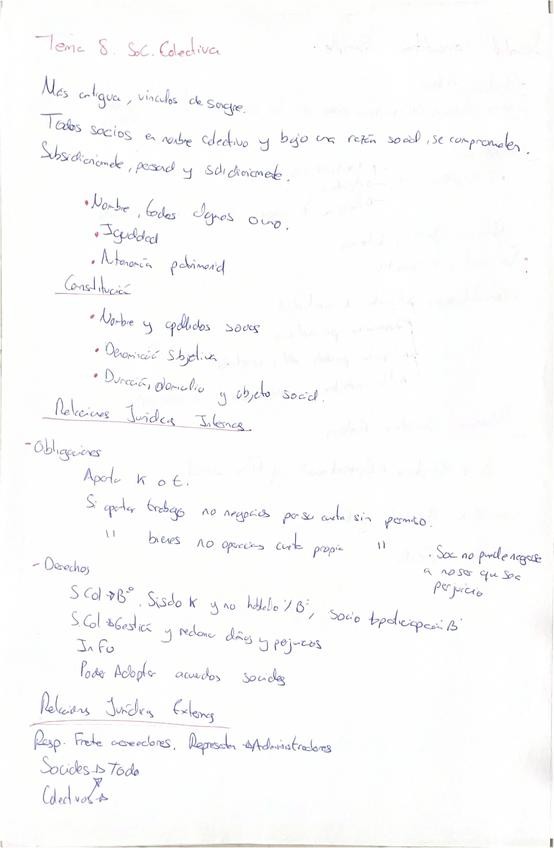 Tema 8. Soc. Colectiva
Más antigua, vínculos de sangre.
Todos socios en nombre colectivo y bajo una razón social, se comprometen.
Subsidiariamente, personal y solidariamente.
• Nombre, todos algunos o uno.
• Igualdad
• Autonomía patrimonial
Constitución
• Nombre y apellidos socios
• Denominación Subjetiva
• Duración, domicilio y objeto social.
Relaciones Jurídicas Internas
- Obligaciones
Aportar K o t.
Si aportar trabajo no negocios por su cuenta sin permiso.
" bienes no operacios cuenta propia "
. Soc no puede negarse
a no ser que sea
perjuicio
- Derechos
S Col → Bº. Si sólo K y no % Bº, socio participación Bº
S Col → Gestión y reclamar daños y perjuicios
Info
Poder Adoptar acuerdos sociales
Relaciones Jurídicas Externas
Resp. Frente acreedores. Representa → Administradores
Sociales → Todo
Colectivos →